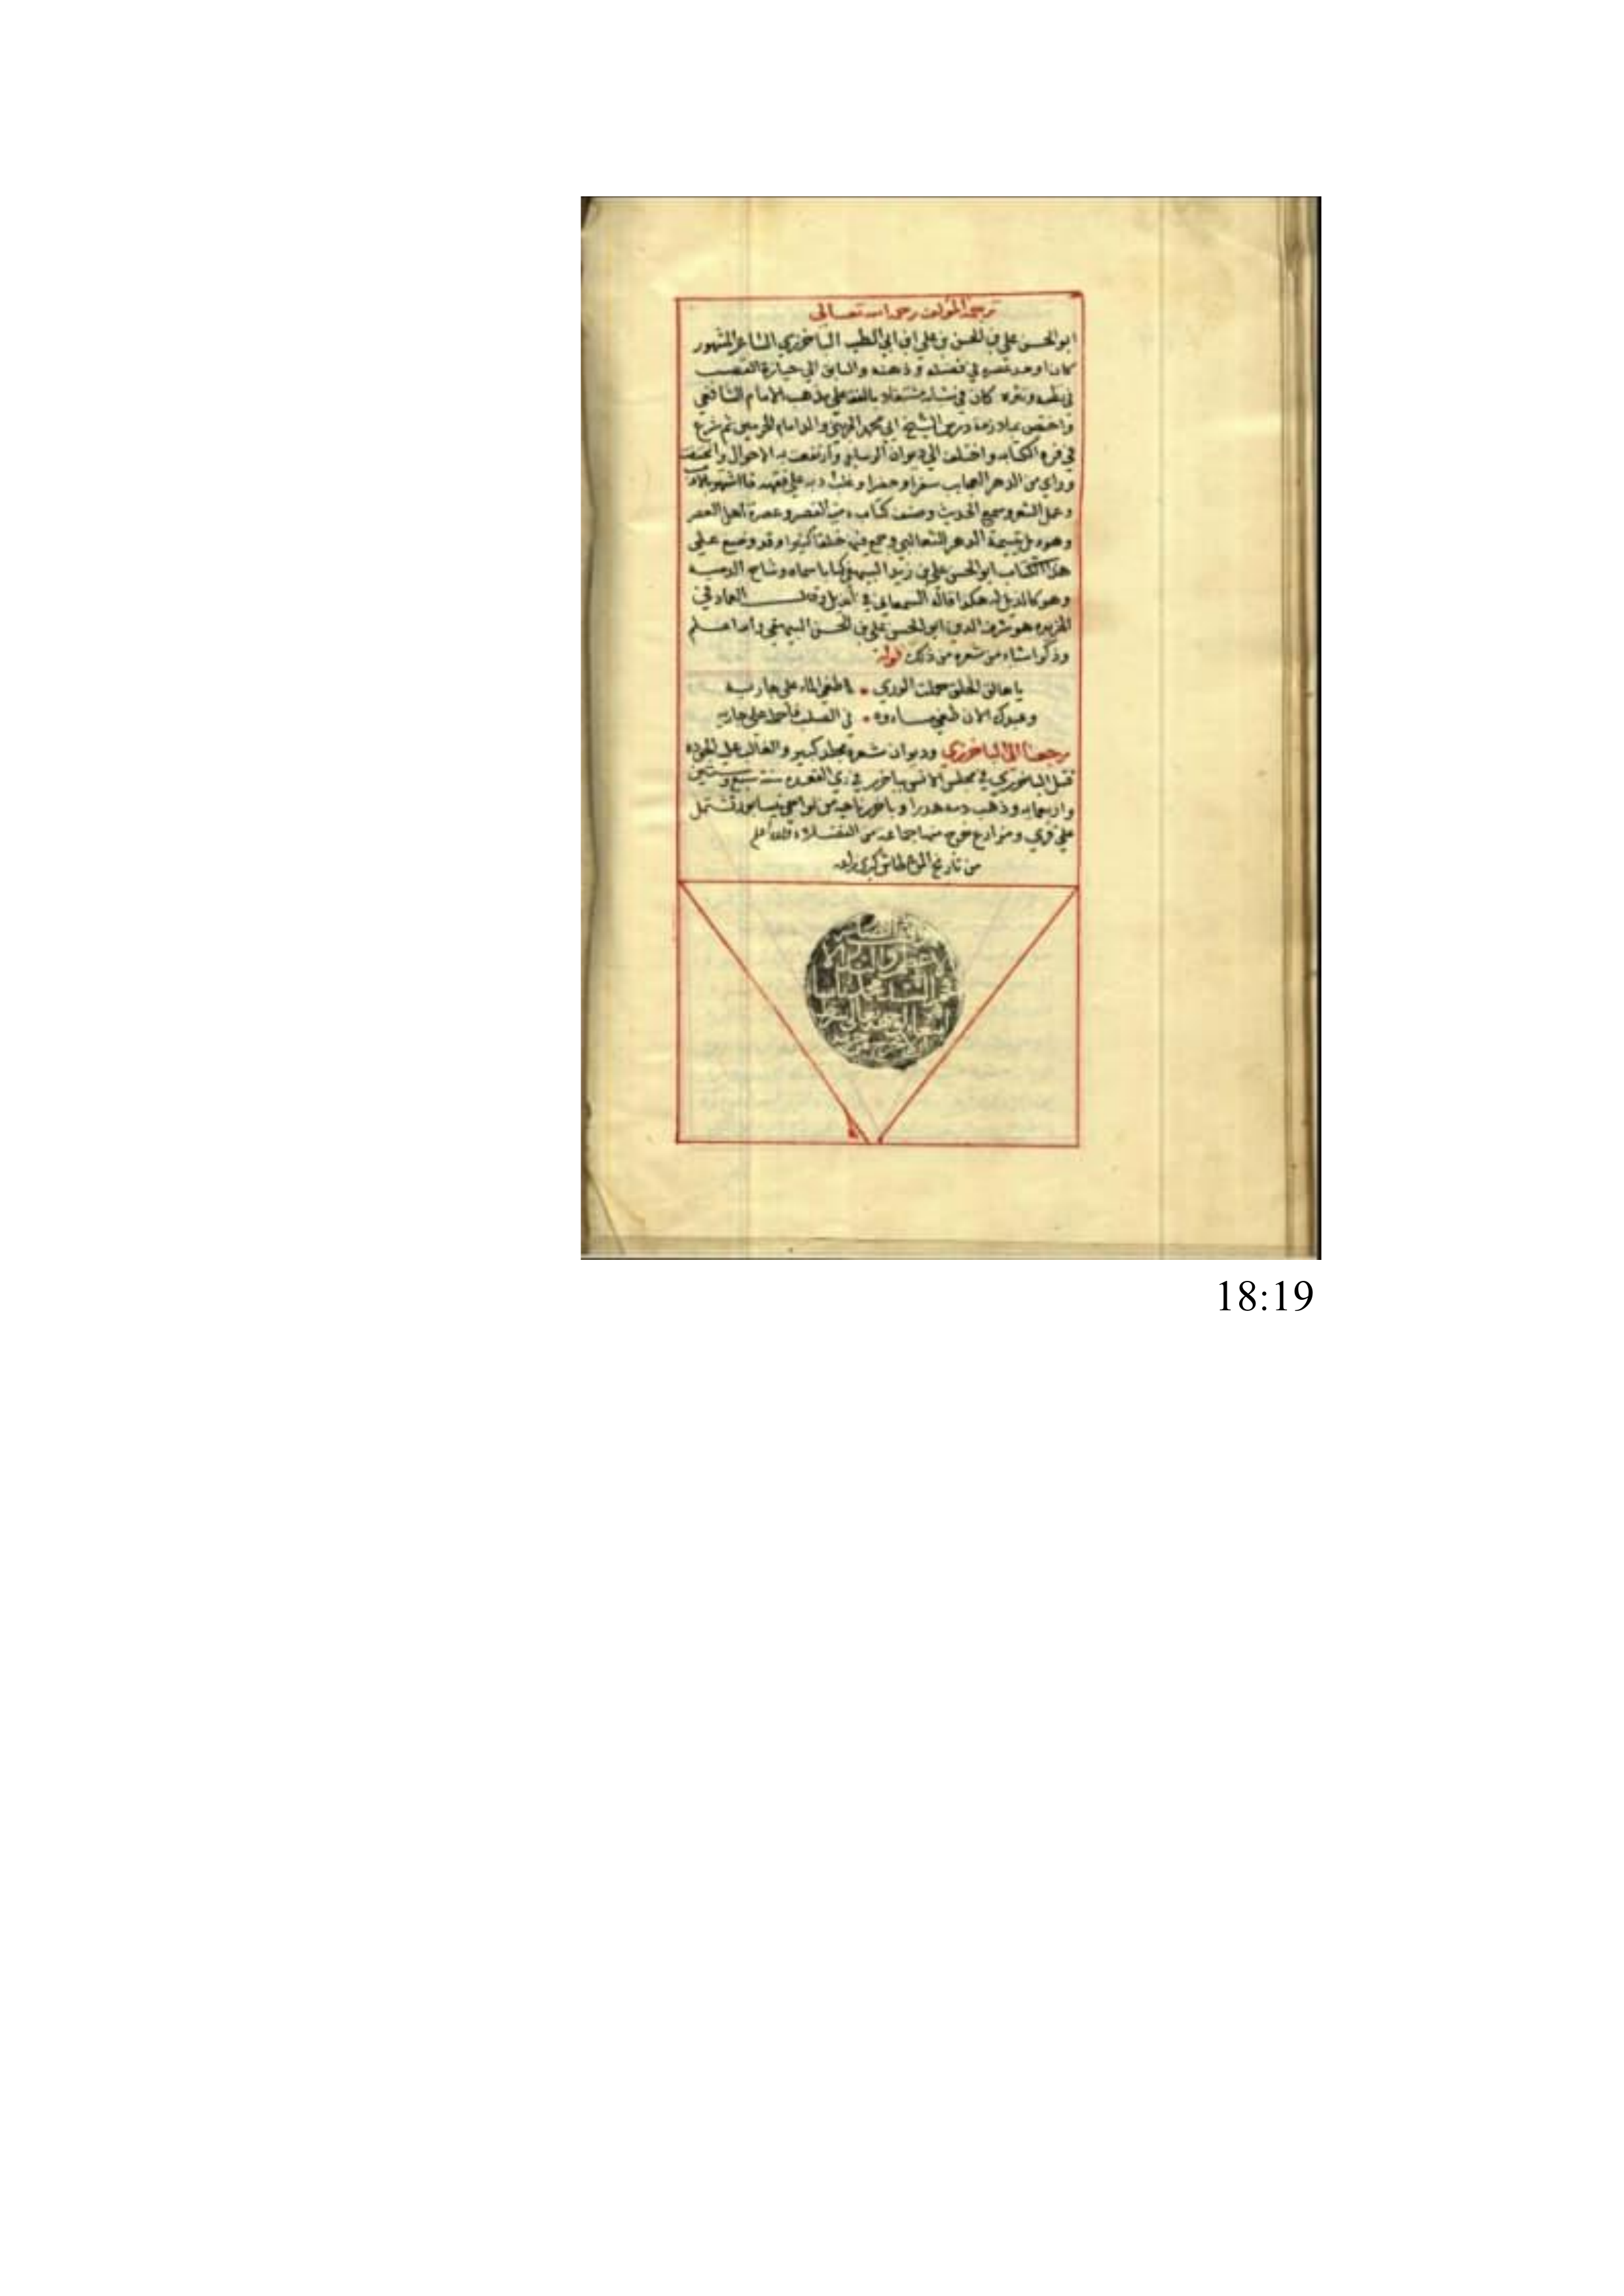 ترجمة المؤلف رحمه الله تعالى
ابو الحسن علي بن الحسن بن علي ابن ابي الطيب الباخرزي الشاعر المشهور
كان اوحد عصره في فضله وذهنه والسابق الي حيازة القصب
في نظمه ونثره كان في شبابه مشتغلا بالفقه علي مذهب الامام الشافعي
واختص بملازمة درس الشيخ ابي محمد الجويني والد امام الحرمين ثم شرع
في فن الكتابه واختلف الي ديوان الرسايل وارتفعت به الاحوال وانخفضت
وراي من الدهر العجايب سفرا وحضرا وغلب ادبه علي فقهه فاشتهر بالادب
وعمل الشعر وسمع الحديث وصنف كتاب دمية القصر وعصرة اهل العصر
وهو ذيل يتيمة الدهر للثعالبي وجمع فيه خلقا كثيرا وقد وضع علي
هذا الكتاب ابو الحسن علي بن زيد البيهقي كتابا سماه وشاح الدميه
وهو كالذيل له هكذا قاله السمعاني في الذيل وقال العماد في
الخريده هو شرف الدين ابو الحسن علي بن الحسن البيهقي والله اعلم
وذكر اشياء من شعره من ذلك قوله
يا خالق الخلق حملت الوري • لما طغي الماء علي جاريه
وعبدك الان طغي ماءوه • في الصلب فاحمله علي جاريه
رجعنا الي الباخرزي وديوان شعره مجلد كبير والغالب عليه الجوده
قتل الباخرزي في مجلس الانس بباخرز في ذي القعده سنة سبع وستين
واربعمايه وذهب دمه هدرا وباخرز ناحيه من نواحي نيسابور تشتمل
علي قري ومزارع خرج منها جماعة من الفضلاء والله اعلم
من تاريخ طاش كبري زاده
18:19